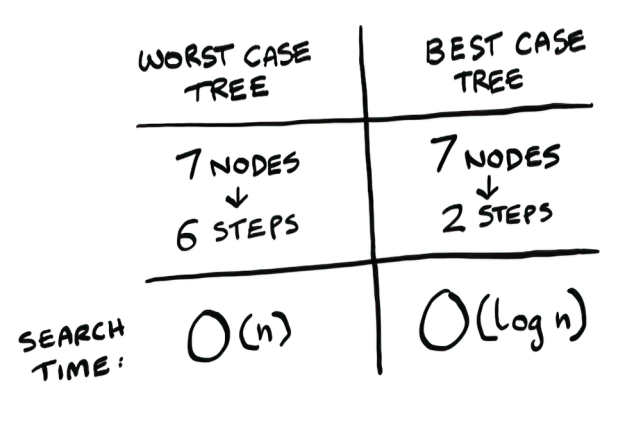 WORST CASE
TREE
BEST CASE
TREE
7 NODES
↓
6 STEPS
7 NODES
↓
2 STEPS
SEARCH
TIME:
O(n)
O(log n)